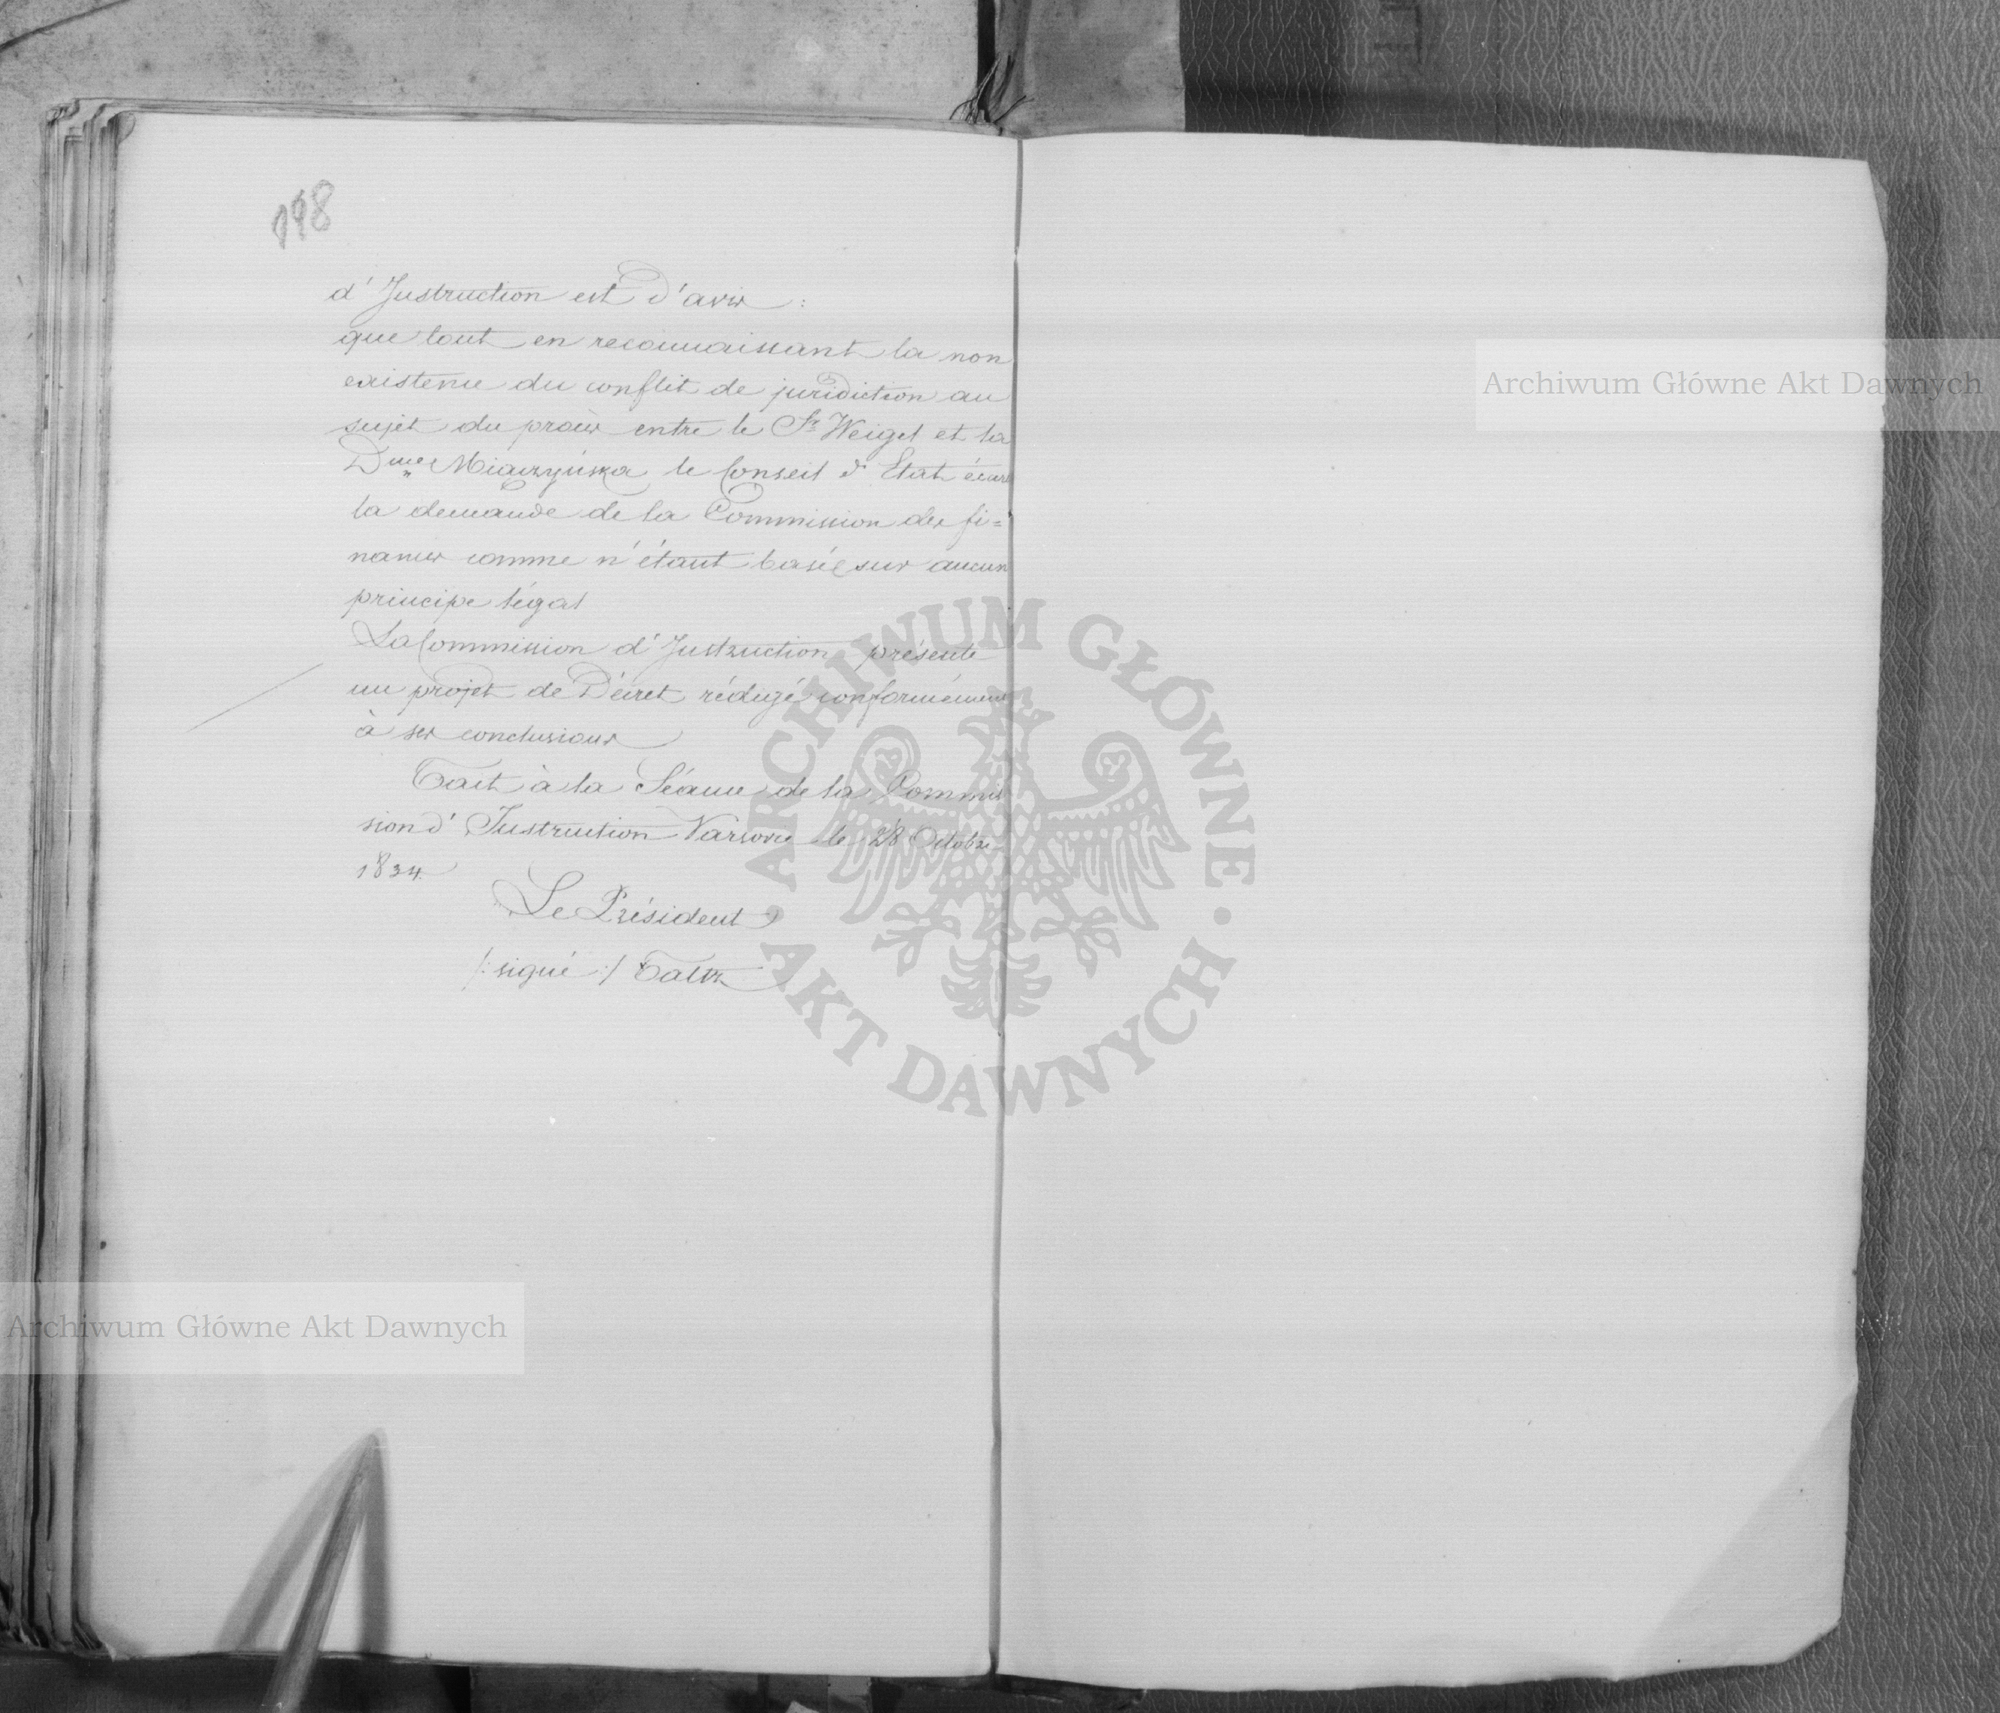 198
d'Instruction est d'avis :
que tout en reconnaissant la non
existence du conflit de juridiction au
sujet du procès entre le Sr Weigel et la
Dme Miaczyńska le Conseil d'Etat écarte
la demande de la Commission des fi=
nances comme n'étant basée sur aucun
principe légal
La Commission d'Instruction présente
un projet de Décret rédigé conformément
à ses conclusions
Fait à la Séance de la Commis
sion d'Instruction Varsovie le 28 Octobre
1834.
Le Président
/: signé :/
Archiwum Główne Akt Dawnych
ARCHIWUM GŁÓWNE · AKT DAWNYCH ·
Archiwum Główne Akt Dawnych